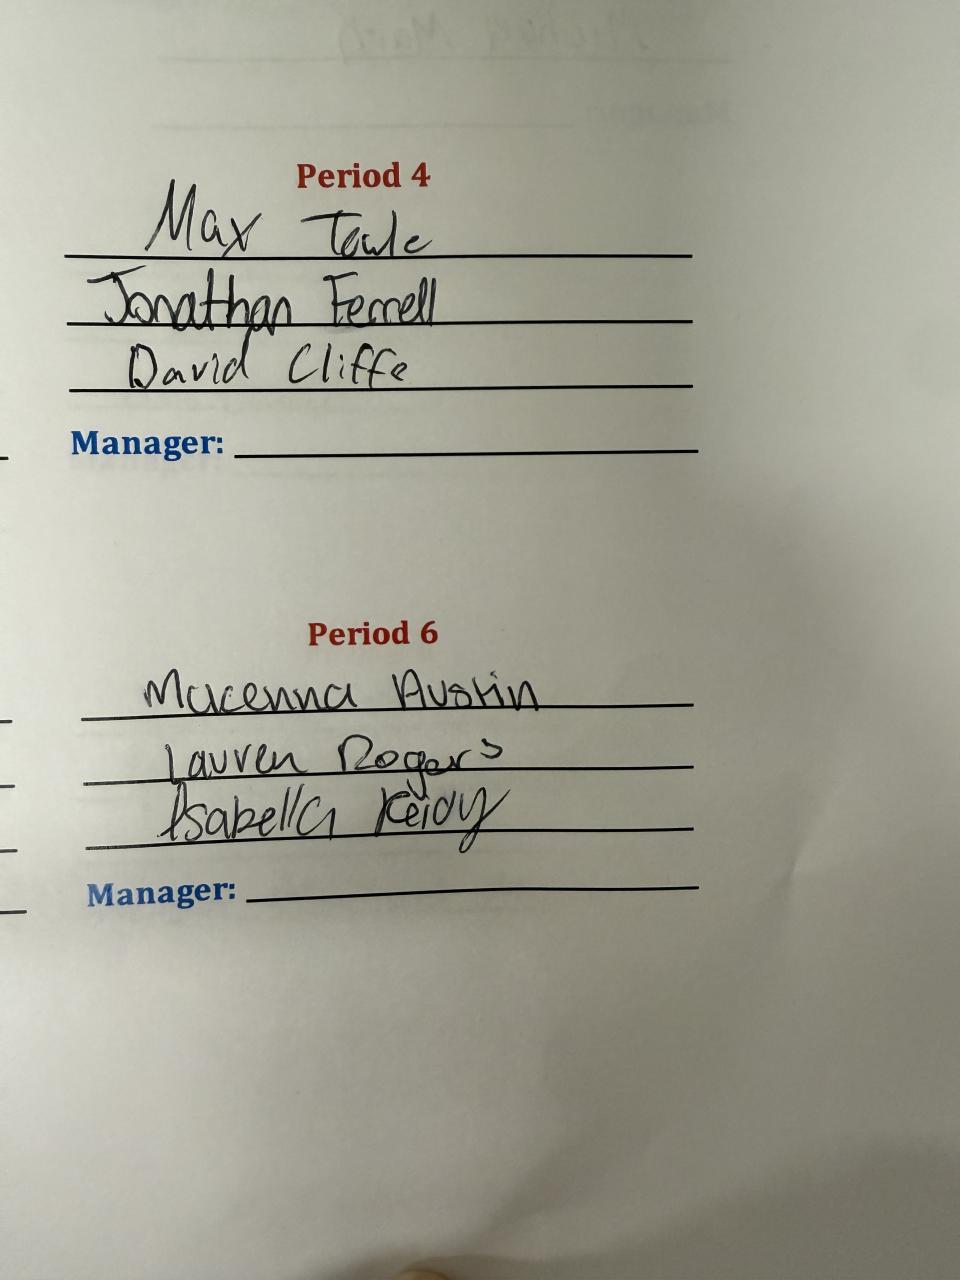 Period 4
Max Towle
Jonathan Ferrell
David Cliffe
Manager:
Period 6
Macenna Austin
Lauren Rogers
Isabella Reidy
Manager: